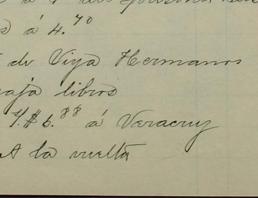 á 4.70
de Viya Hermanos
caja libros
$6.88 á Veracruz
A la vuelta